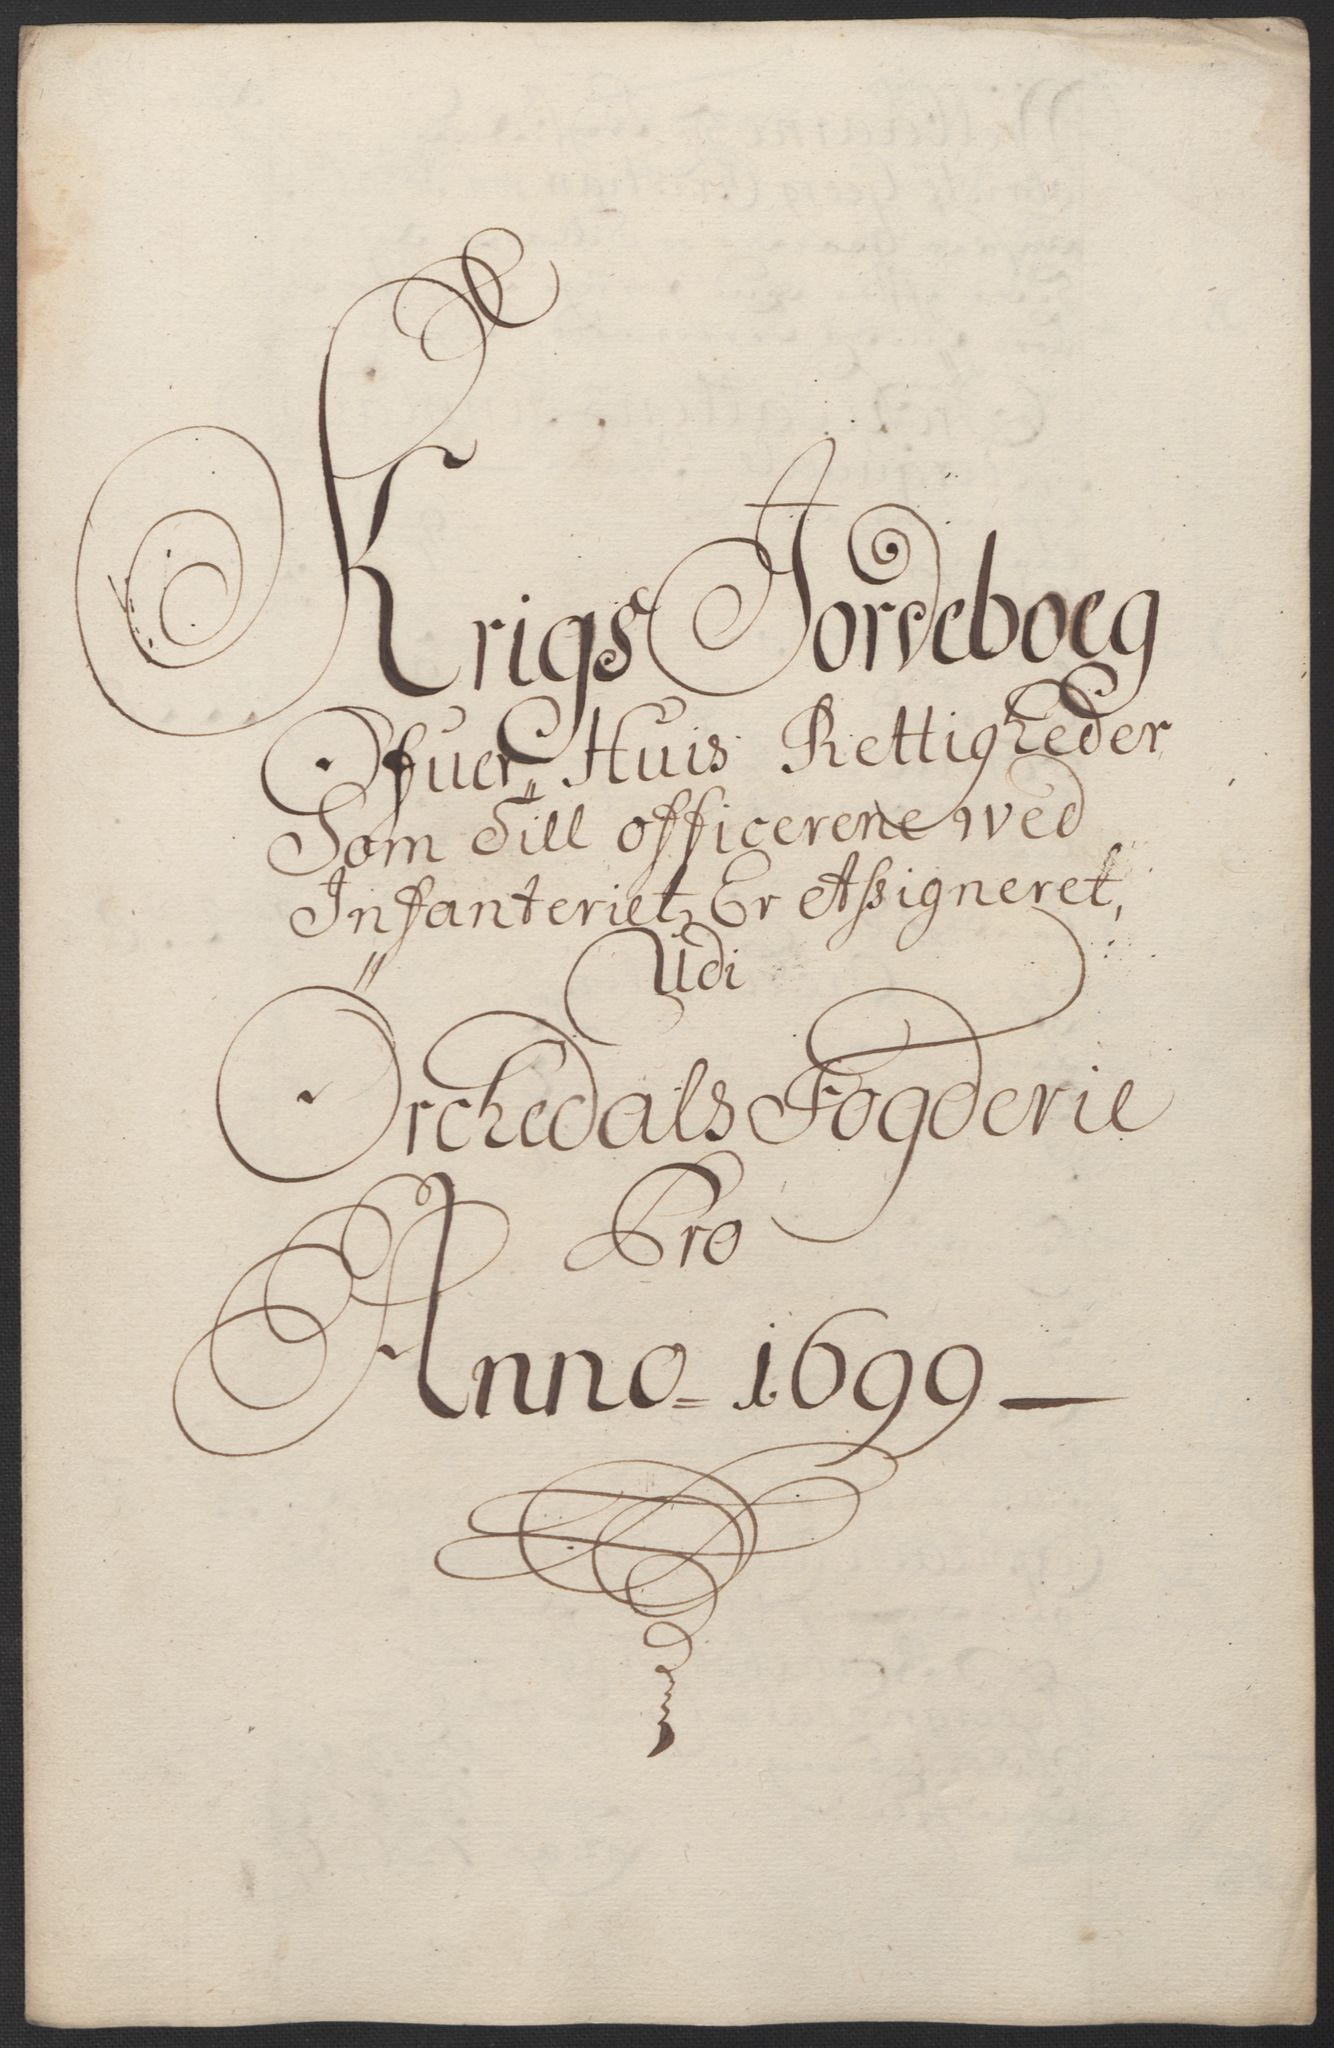 Krigs Jordeboeg
Ofuer Huis Rettigheder
Som Till officerene wed
Infanteriet, Er Assigneret,
Udi
Orckedals Fogderie
Pro
Anno = 1699 —